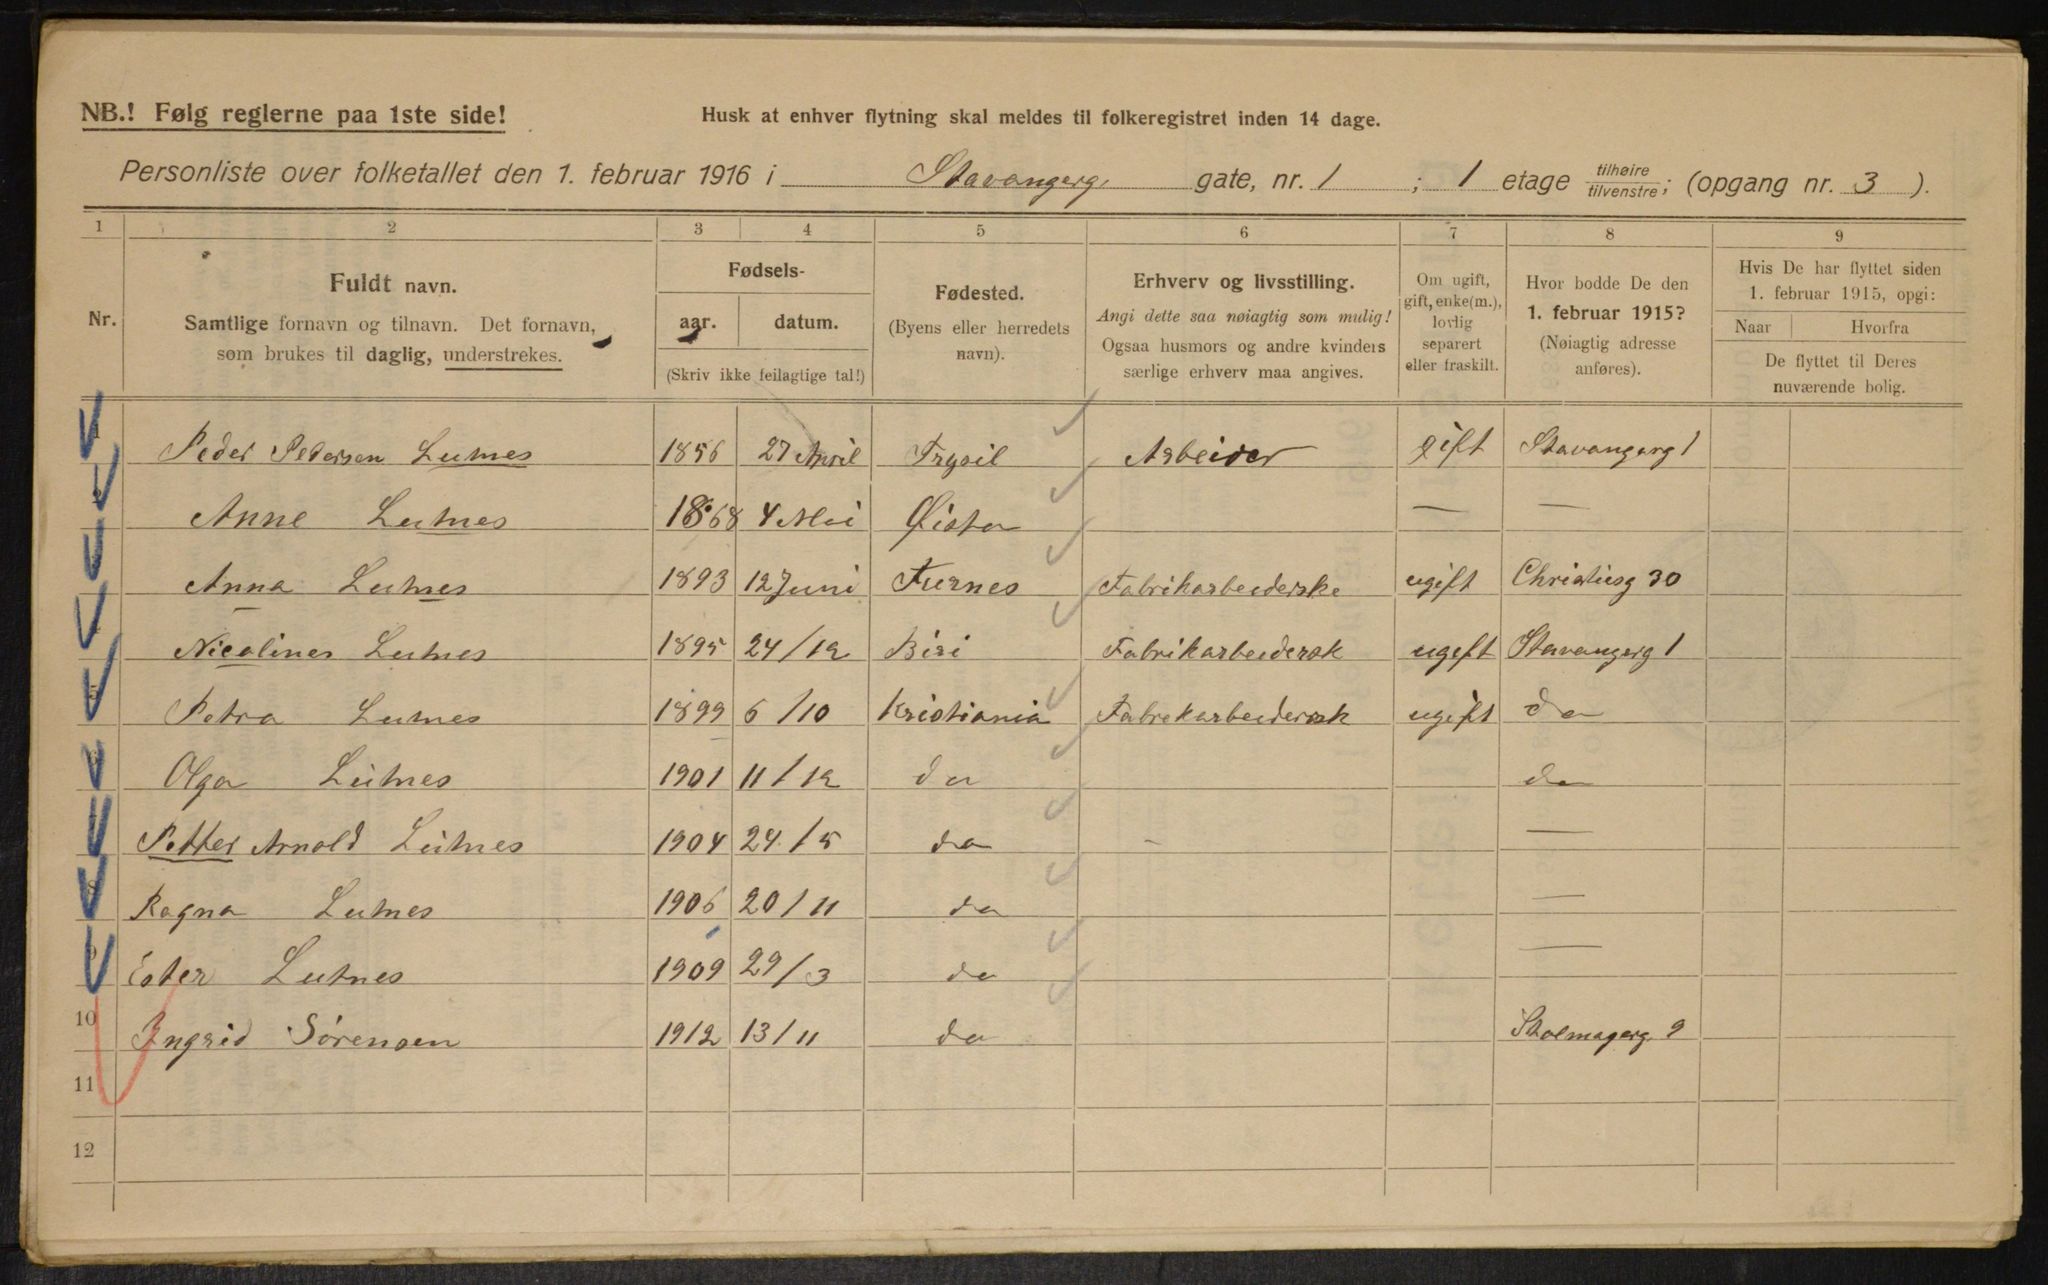 NB.! Følg reglerne paa 1ste side!
Husk at enhver flytning skal meldes til folkeregistret inden 14 dage.
Personliste over folketallet den 1. februar 1916 i Stavangerg. gate, nr. 1 ; 1 etage tilhøire tilvenstre; (opgang nr. 3 ).
1 2 3 4 5 6 7 8 9
Nr.
Fuldt navn.
Samtlige fornavn og tilnavn. Det fornavn,
som brukes til daglig, understrekes.
Fødsels-
aar. datum.
(Skriv ikke feilagtige tal!)
Fødested.
(Byens eller herredets
navn).
Erhverv og livsstilling.
Angi dette saa nøiagtig som mulig!
Ogsaa husmors og andre kvinders
særlige erhverv maa angives.
Om ugift,
gift, enke(m.),
lovlig
separert
eller fraskilt.
Hvor bodde De den
1. februar 1915?
(Nøiagtig adresse
anføres).
Hvis De har flyttet siden
1. februar 1915, opgi:
Naar Hvorfra
De flyttet til Deres
nuværende bolig.
Peder Pedersen Lutnes 1856 27 April Trysil Arbeider gift Stavangerg 1
Anne Lutnes 1868 4 Mai — —
Anna Lutnes 1893 12 Juni Furnes Fabrikarbeiderske ugift Christiesg 30
Nicoliner Lutnes 1895 24/12 Biri Fabrikarbeidersk ugift Stavangerg 1
Petra Lutnes 1899 6/10 Kristiania Fabrekarbeidersk ugift do
Olga Lutnes 1901 11/12 do do
Petter Arnold Lutnes 1904 24/5 do - —
Ragna Lutnes 1906 20/11 do —
Ester Lutnes 1909 29/3 do —
10 Ingrid Sörensen 1912 13/11 do Stolmagerg. 9
11
12